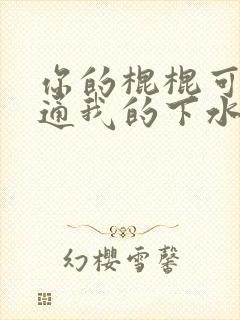 你的棍棍可
通我的下水
幻樱雪馨